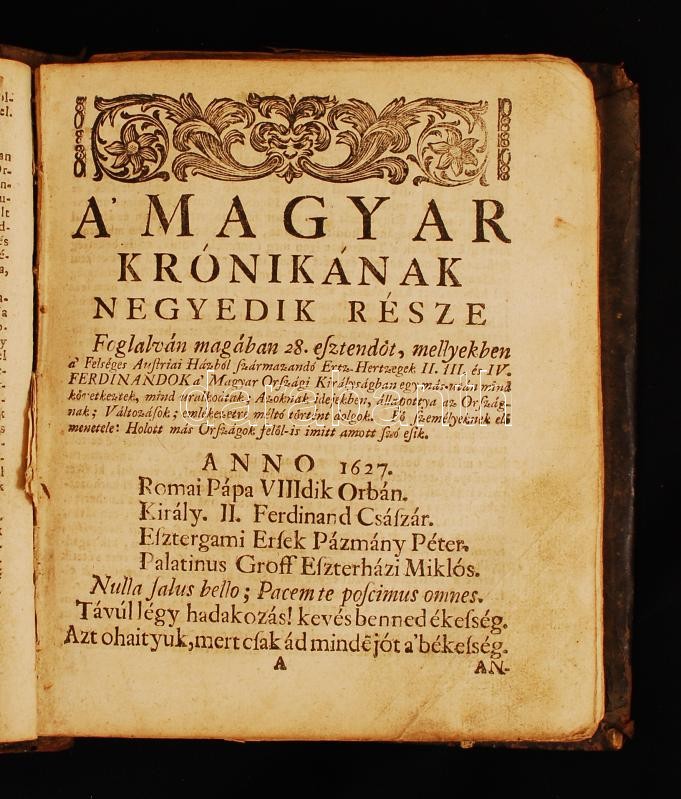 A' MAGYAR
KRÓNIKÁNAK
NEGYEDIK RÉSZE
Foglalván magában 28. eſztendőt, mellyekben
a' Felséges Auſtriai Házból ſzármazandó Ertz-Hertzegek II. III. és IV.
FERDINANDOK a' Magyar Orſzági Királyságban egymás-után mind
következtek, mind uralkodtak; Azoknak idejekben, állapottya az Orſzág-
nak; Változáſok; emlékezetre méltó történt dolgok. Fő ſzemélyeknek elő
menetele: Holott más Orſzágok felől-is imitt amott ſzó esik.
ANNO 1627.
Romai Pápa VIIIdik Orbán.
Király. II. Ferdinand Csáſzár.
Eſztergami Erſek Pázmány Péter.
Palatinus Groff Eſzterházi Miklós.
Nulla ſalus bello; Pacem te poſcimus omnes.
Távúl légy hadakozás! kevés benned ékeſség.
Azt ohaityuk, mert cſak ád mindē jót a' békeſség.
A AN-